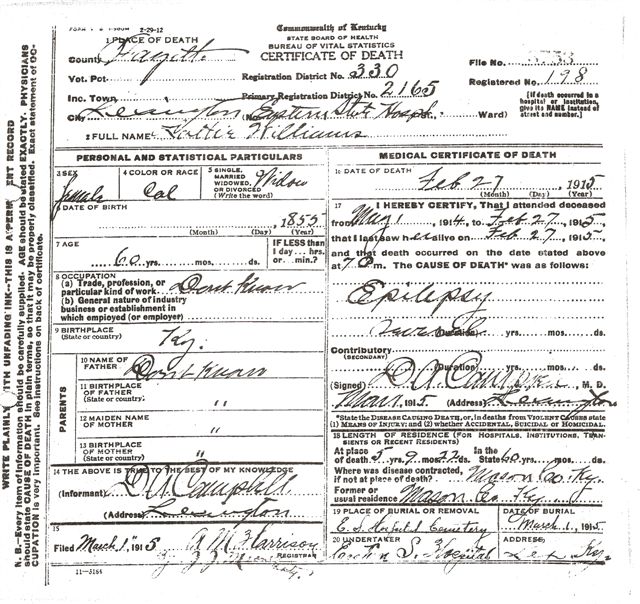 2-29-12
Commonwealth of Kentucky
STATE BOARD OF HEALTH
BUREAU OF VITAL STATISTICS
CERTIFICATE OF DEATH
1 PLACE OF DEATH
County Fayette
Vot. Pct.
Registration District No. 330
File No.
Inc. Town
Primary Registration District No. 2165
Registered No. 198
City Lexington (No. Eastern State Hosp. Ward)
[If death occurred in a hospital or institution, give its NAME instead of street and number.]
2 FULL NAME Williams
PERSONAL AND STATISTICAL PARTICULARS
3 SEX female
4 COLOR OR RACE Col
5 SINGLE, MARRIED WIDOWED, OR DIVORCED (Write the word) Widow
6 DATE OF BIRTH
1855
(Month) (Day, (Year)
7 AGE 60 yrs. mos. ds.
IF LESS than 1 day... hrs. or... min.?
8 OCCUPATION
(a) Trade, profession, or particular kind of work Dont Know
(b) General nature of industry business or establishment in which employed (or employer)
9 BIRTHPLACE (State or country) Ky.
PARENTS
10 NAME OF FATHER Dont Know
11 BIRTHPLACE OF FATHER (State or country) "
12 MAIDEN NAME OF MOTHER "
13 BIRTHPLACE OF MOTHER (State or country) "
14 THE ABOVE IS TRUE TO THE BEST OF MY KNOWLEDGE
(Informant)
(Address) Lexington
15
Filed March 1" 1915 A M Harrison
REGISTRAR
11—3184
MEDICAL CERTIFICATE OF DEATH
16 DATE OF DEATH
Feb 27, 1915
(Month) (Day) (Year)
17 I HEREBY CERTIFY, That I attended deceased
from May 1 1914, to Feb 27, 1915,
that I last saw her alive on Feb 27, 1915
and that death occurred on the date stated above
at 7 m. The CAUSE OF DEATH* was as follows:
Epilepsy
(Duration) yrs. mos. ds.
Contributory (SECONDARY)
(Duration) yrs. mos. ds.
(Signed) M. D.
Mar 1, 1915. (Address) Lexington
*State the DISEASE CAUSING DEATH, or, in deaths from VIOLENT CAUSES state (1) MEANS OF INJURY; and (2) whether ACCIDENTAL, SUICIDAL or HOMICIDAL.
18 LENGTH OF RESIDENCE (FOR HOSPITALS, INSTITUTIONS, TRANSIENTS OR RECENT RESIDENTS)
At place of death 5 yrs. 9 mos. 22 ds. In the State 60 yrs. mos. ds.
Where was disease contracted, if not at place of death? Mason Co. Ky.
Former or usual residence Mason Co Ky.
19 PLACE OF BURIAL OR REMOVAL
E S Hospital Cemetery
DATE OF BURIAL
March 1, 1915
20 UNDERTAKER
Eastern S. Hospital
ADDRESS
Lex Ky.
WRITE PLAINLY WITH UNFADING INK—THIS IS A PERM ENT RECORD
N. B.—Every item of information should be carefully supplied. AGE should be stated EXACTLY. PHYSICIANS should state CAUSE OF DEATH in plain terms, so that it may be properly classified. Exact statement of OCCUPATION is very important. See instructions on back of certificate.